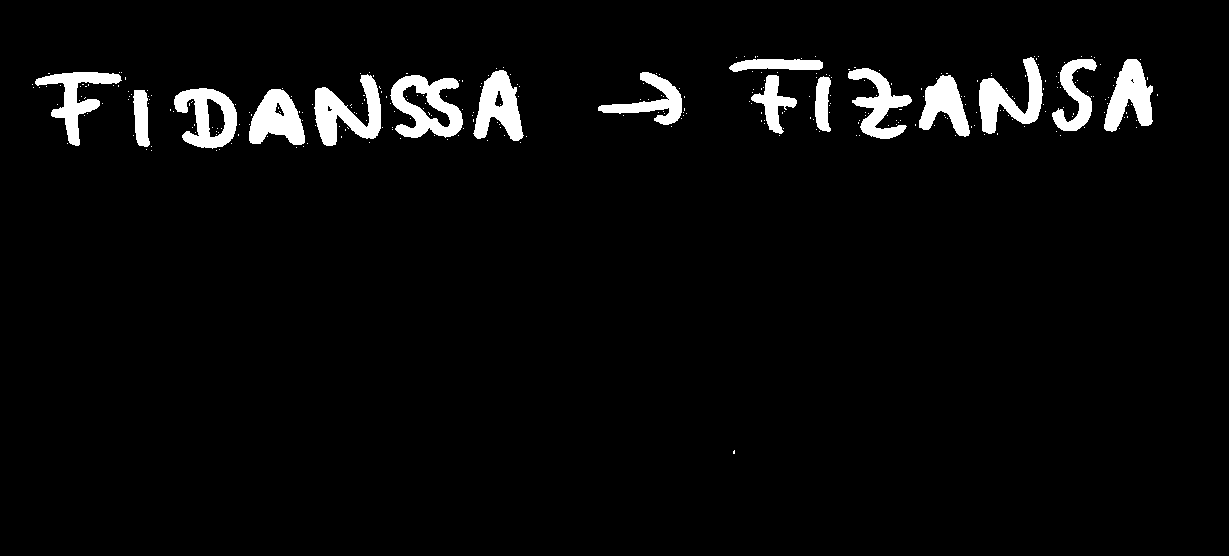 FIDANSSA → FIZANSA